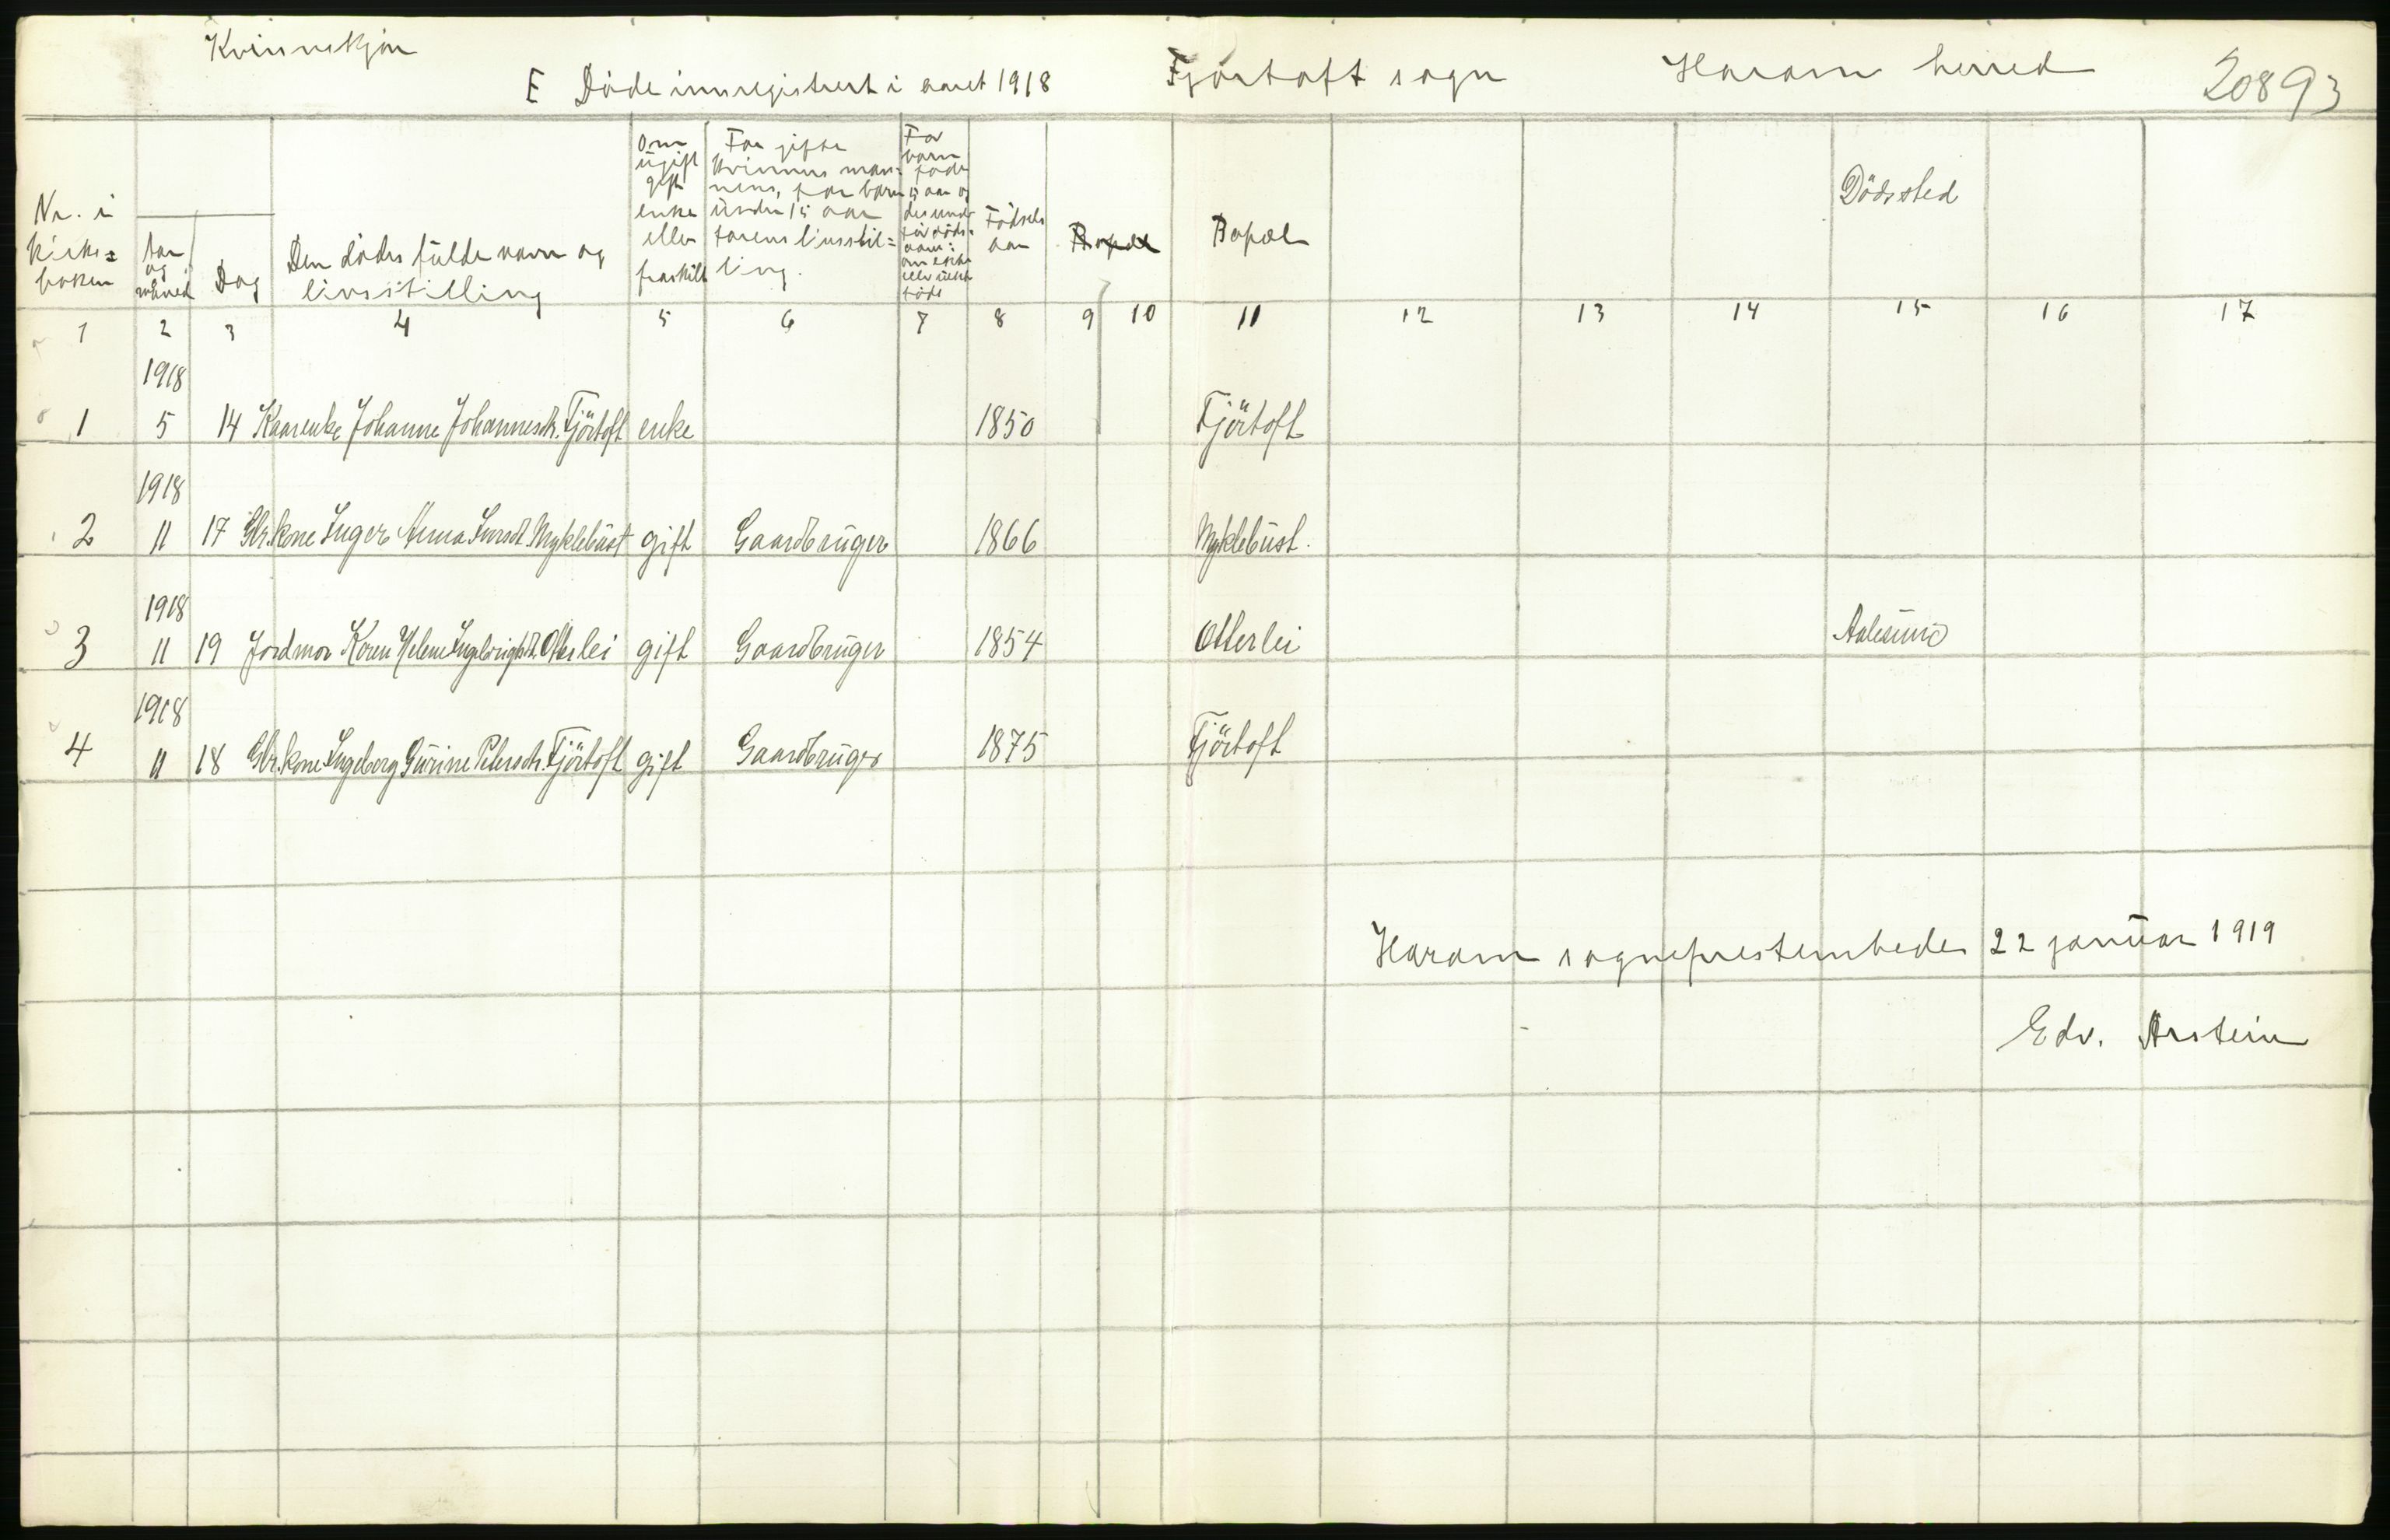 Kvinnekjön
E Döde innregistrert i aaret 1918 Fjörtoft sogn Haram herred 20893
Nr. i kirke= boken
aar og maaned
Dag
Den dödes fulde navn og livsstilling
Om ugift gift enke eller fraskilt
For gifte kvinner man= nens, for barn under 15 aar farens livsstil= ling.
For barn
Födsels aar
Bopæl
Bopæl
Dödssted
1 2 3 4 5 6 7 8 9 10 11 12 13 14 15 16 17
1918
1 5 14 Kaarenke Johanne Johannesdt. Fjörtoft enke 1850 Fjörtoft
1918
2 11 17 Gbr.kone Inger Anna Iversdt. Myklebust gift Gaardbruger 1866 Myklebust.
1918
3 11 19 Jordmor Karen Helene Ingebrigtsdt. Otterlei gift Gaardbruger 1854 Otterlei Aalesund
1918
4 11 18 Gbr.kone Ingeborg Gurine Petersdt. Fjörtoft gift Gaardbruger 1875 Fjörtoft
Haram sogneprestembede 22 januar 1919
Edv. Arstein